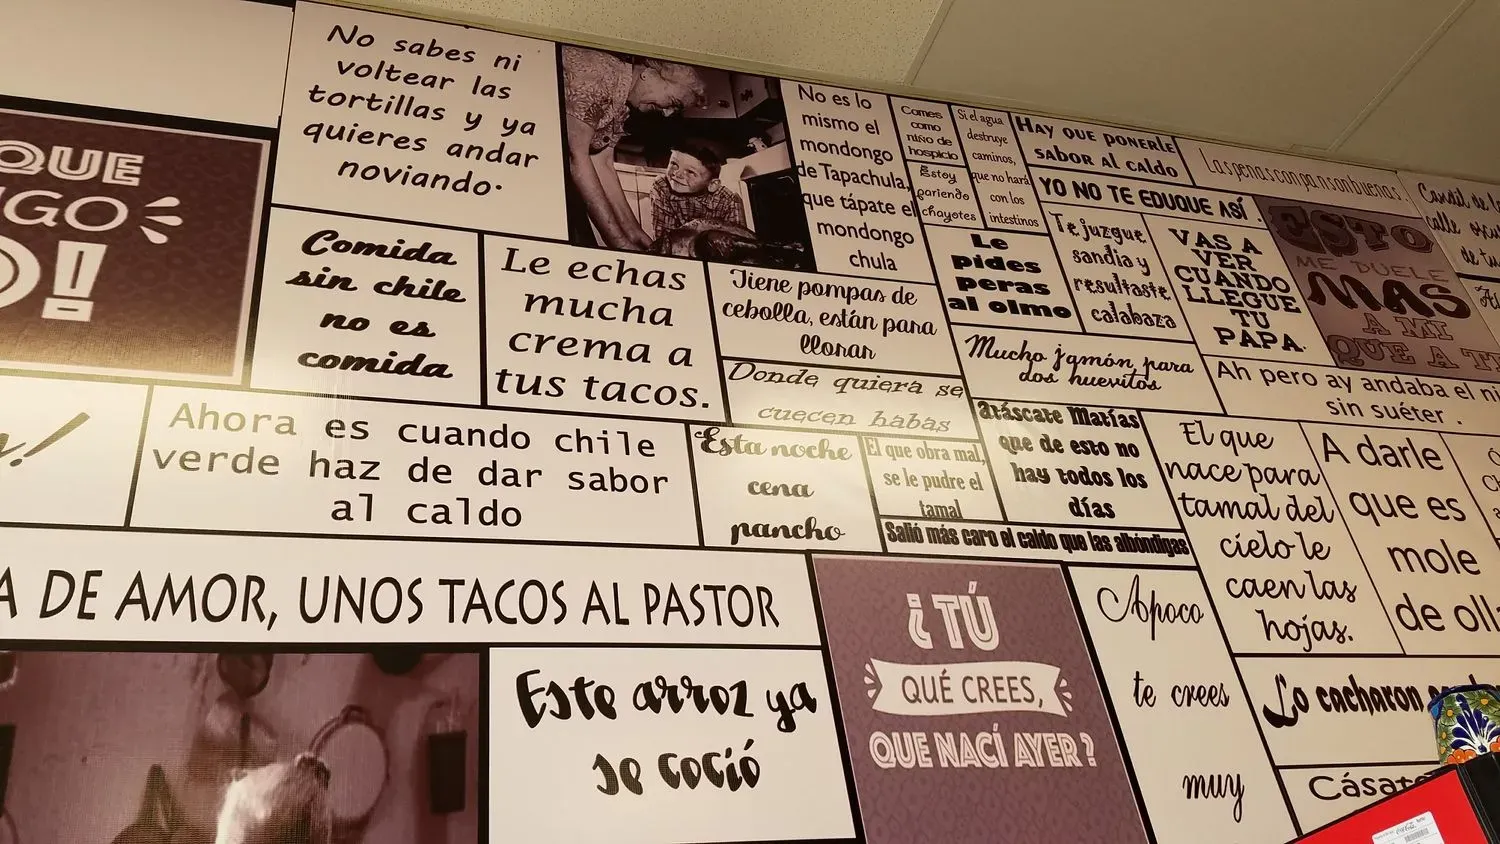 QUE
NGO
O!
No sabes ni
voltear las
tortillas y ya
quieres andar
noviando.
No es lo
mismo el
mondongo
de Tapachula,
que tápate el
mondongo
chula
Comes
como
niño de
hospicio
Si el agua
destruye
caminos,
que no hará
con los
intestinos
Hay que ponerle
sabor al caldo
Las penas con pan son buenas
Estoy
pariendo
chayotes
YO NO TE EDUQUE ASÍ.
Comida
sin chile
no es
comida
Le echas
mucha
crema a
tus tacos.
Tiene pompas de
cebolla, están para
llorar
Le
pides
peras
al olmo
Te juzgue
sandia y
resultaste
calabaza
VAS A
VER
CUANDO
LLEGUE
TU
PAPA.
ESTO
ME DUELE
MAS
A MI
QUE A TI
Donde quiera se
cuecen habas
Mucho jamón para
dos huevitos
Ah pero ay andaba el ni
sin suéter.
Ahora es cuando chile
verde haz de dar sabor
al caldo
Esta noche
cena
pancho
El que obra mal,
se le pudre el
tamal
Atáscate Matías
que de esto no
hay todos los
días
Salió más caro el caldo que las albóndigas
El que
nace para
tamal del
cielo le
caen las
hojas.
A darle
que es
mole
de oll
A DE AMOR, UNOS TACOS AL PASTOR
Este arroz ya
se coció
¿TÚ
QUÉ CREES,
QUE NACÍ AYER?
Apoco
te crees
muy
Lo cacharon
Cásate